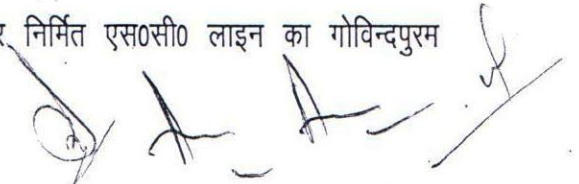 निर्मित एस0सी0 लाइन का गोविन्दपुरम